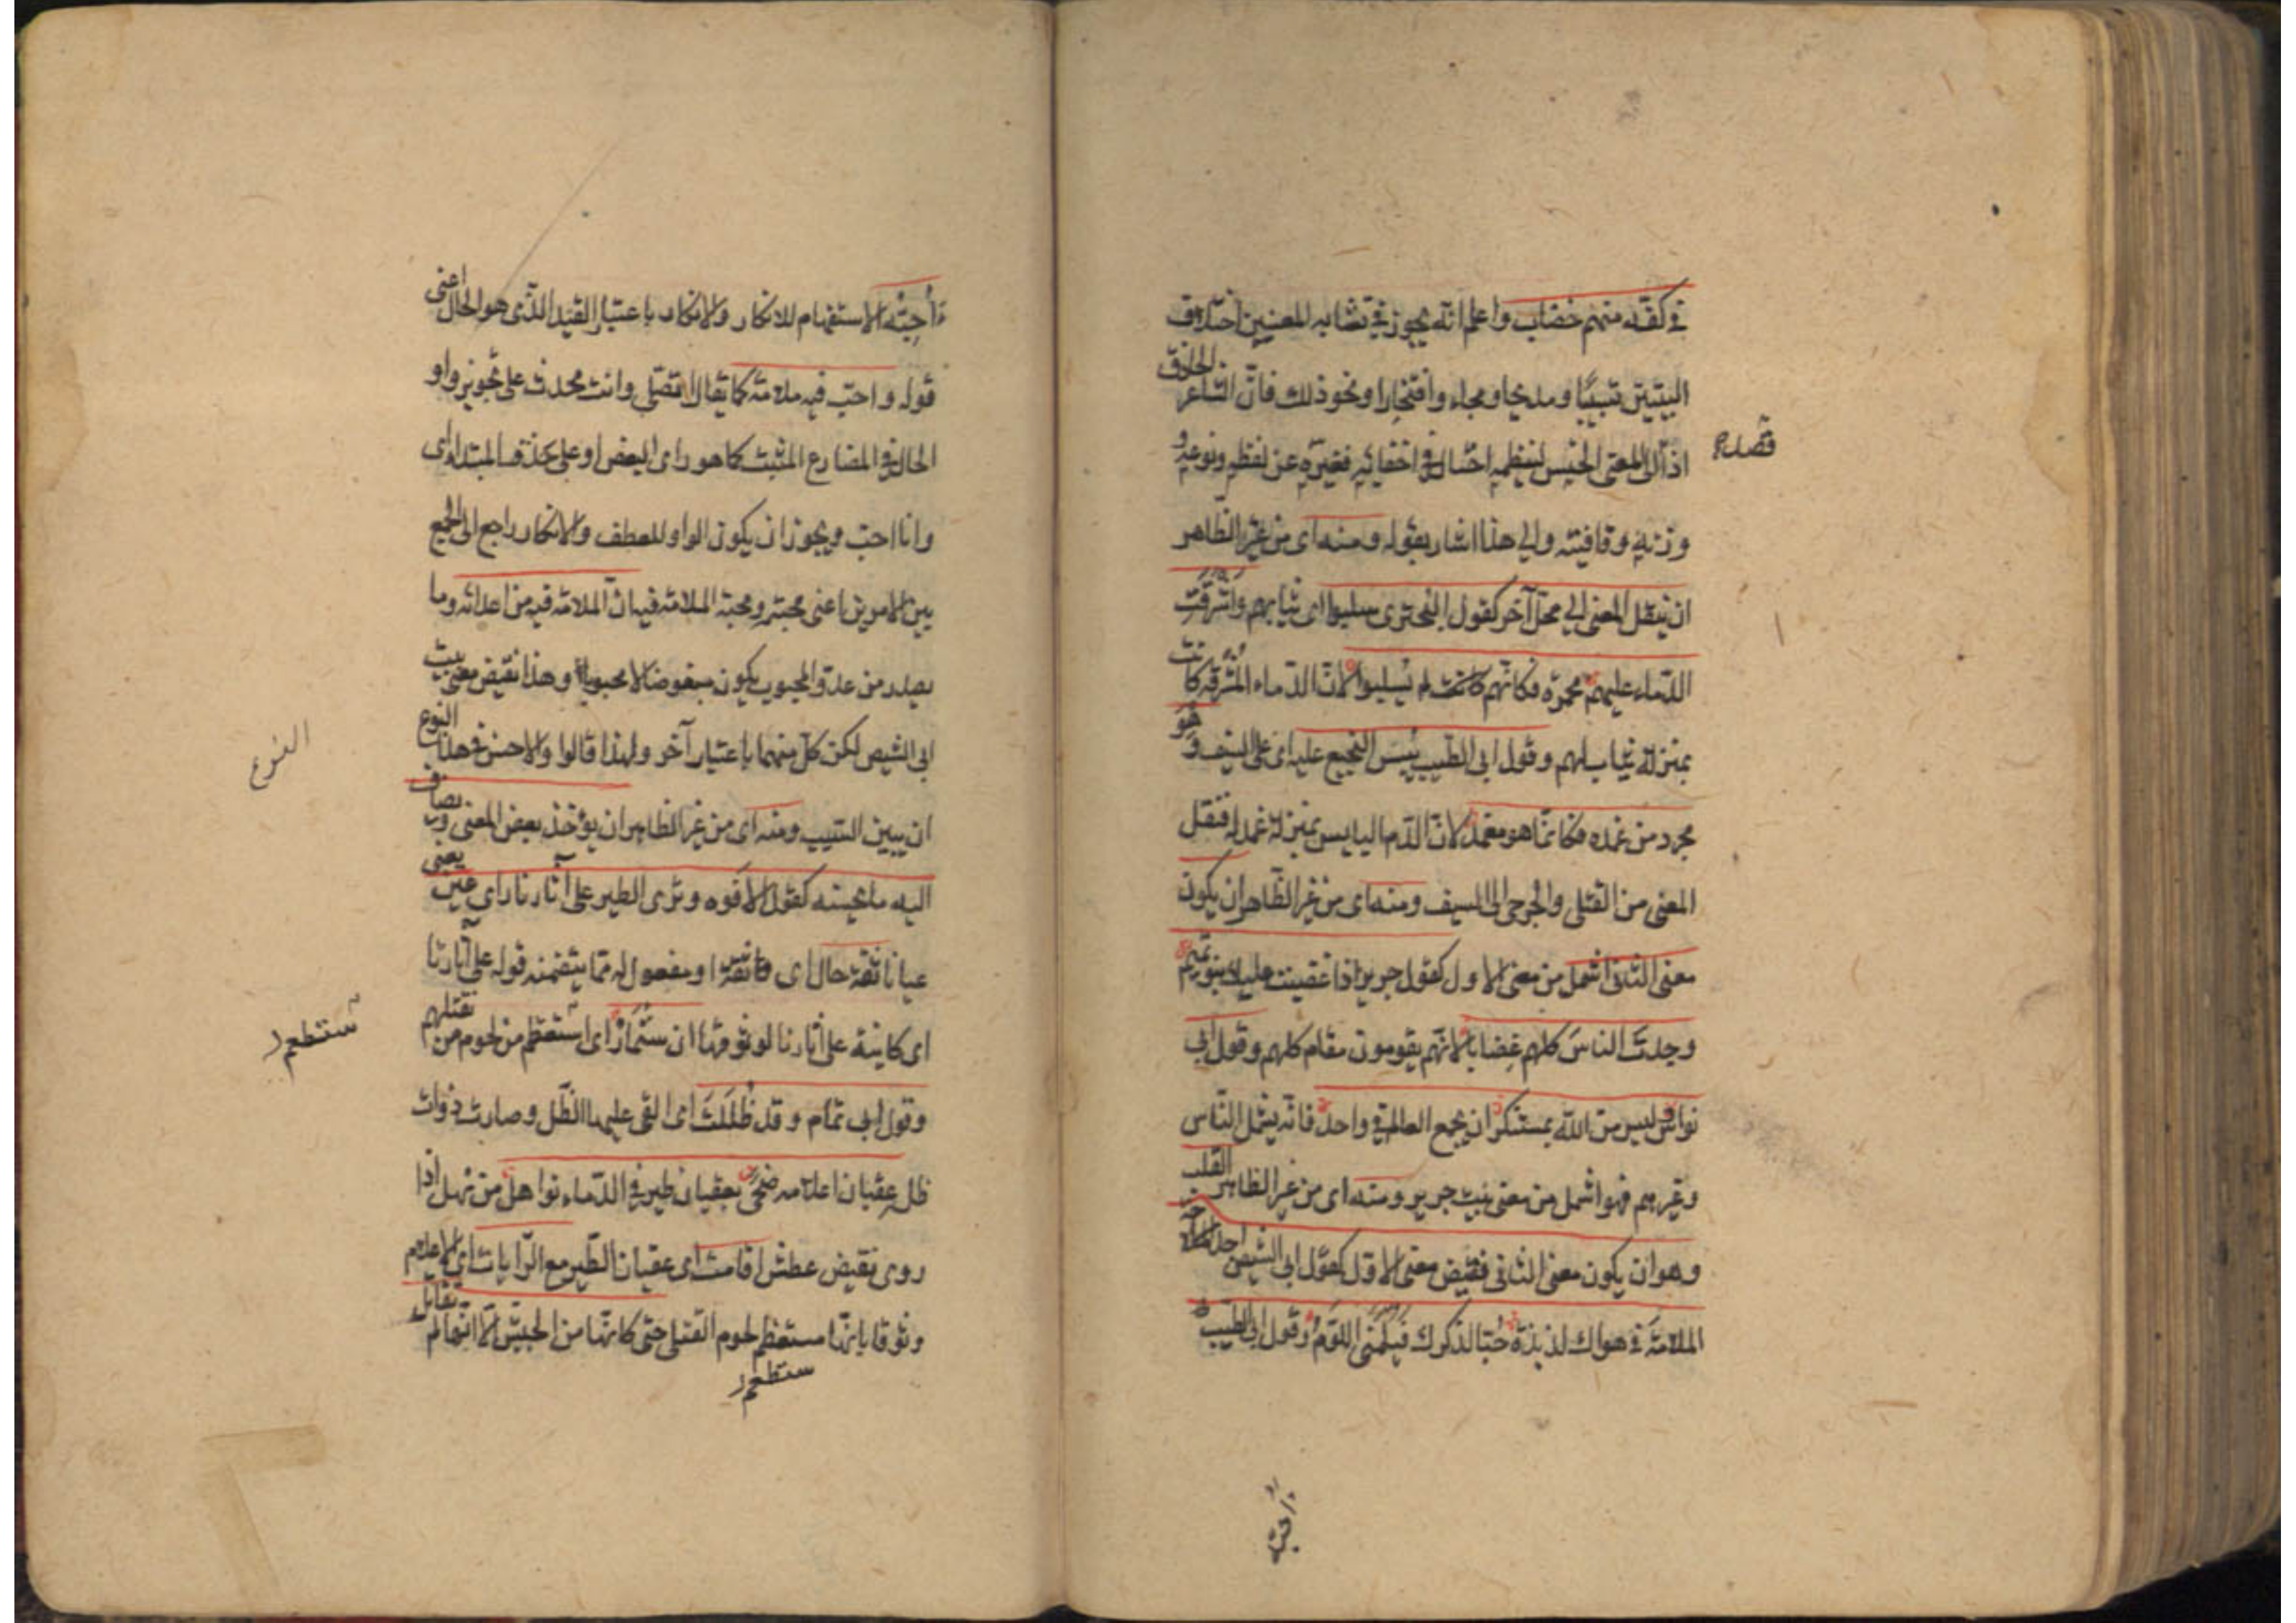 في كفه منهم خضاب واعلم انه يجوز في تشابه المعنيين اختلاف
البيتين تشبيبًا ومديحا وهجاء وافتخارا ونحو ذلك فانّ الشاعر الحاذق
اذا الى المعنى المختلس لينظمه احتال في اخفائه فغيّره عن لفظه ونوعه و
قصد
وزنه وقافيته والى هذا اشار بقوله ومنه اى من غير الظاهر
ان ينقل المعنى الى محل آخر كقول البحترى سلبوا اى ثيابهم واشرقت
الدّماء عليهم محمرّة فكانّهم لم يُسلبوا لانّ الدّماء المُشرقة كانت
بمنزلة ثياب لهم وقول ابى الطّيب يَبِسَ النجيع عليه اى على السّيف وهو
مجرد من غمده فكانّما هو مغمد لانّ الدّم اليابس بمنزلة غمد له فنقل
المعنى من القتلى والجرحى الى السيف ومنه اى من غير الظّاهر ان يكون
معنى الثانى اشمل من معنى الاول كقول جرير اذا غضبت عليك بنو تميم
وجدتَ الناسَ كلهم غِضابا لانّهم يقومون مقام كلهم وقول ابى
نواس ليس من اللّه بمستنكر ان يجمع العالم فى واحد فانّه يشمل النّاس
وغيرهم فهو اشمل من معنى بيت جرير ومنه اى من غير الظاهر القلب
وهو ان يكون معنى الثانى نقيض معنى الاوّل كقول ابى الشيص اجد
الملامَةَ فى هواك لذيذة حُبّا لذكرك فليلمنى اللوّمُ وقول ابى الطّيب
ءاُحِبّه الاستفهام للانكار والانكار باعتبار القيد الّذى هو الحال اعنى
قوله واحبّ فيه ملامة كما يقال اتصلّى وانت محدث على تجويز واو
الحال فى المضارع المثبت كما هو راى البعض او على حذف المبتدا اى
وانا احبّ ويجوز ان يكون الواو للعطف والانكار راجع الى الجمع
بين الامرين اعنى محبته ومحبة الملامة فيه انّ الملامة فيه من اعدائه وما
يصدر من عدوّ المحبوب يكون مبغوضا لا محبوبا وهذا نقيض معنى بيت
ابى الشيص لكن كلّ منهما باعتبار آخر ولهذا قالوا والاحسن فى هذا النوع
النوع
ان يبين السّبب ومنه اى من غير الظاهر ان يؤخذ بعض المعنى ويضاف
اليه ما يحسنه كقول الافوه وترى الطير على آثارنا راى عين يعنى
عيانا ثقة حال اى واثقة او مفعول له ممّا يتضمنه قوله على آثارنا
اى كاينة على آثارنا لوثوقها ان ستُمار اى ستطعم من لحوم من نقتلهم
ستطعم
وقول ابى تمّام وقد ظُلّلَتْ اى القى عليها الظّل وصارت ذوات
ظل عِقبان اعلامه ضحى بعقبان طير فى الدّماء نواهل من نهل اذا
روى نقيض عطش اقامت اى عقبان الطّير مع الرّايات اى الاعلام
وثوقا بانّها ستطعم لحوم القتلى حتى كانّها من الجيش الّا انّها لم تقاتل
ستطعم